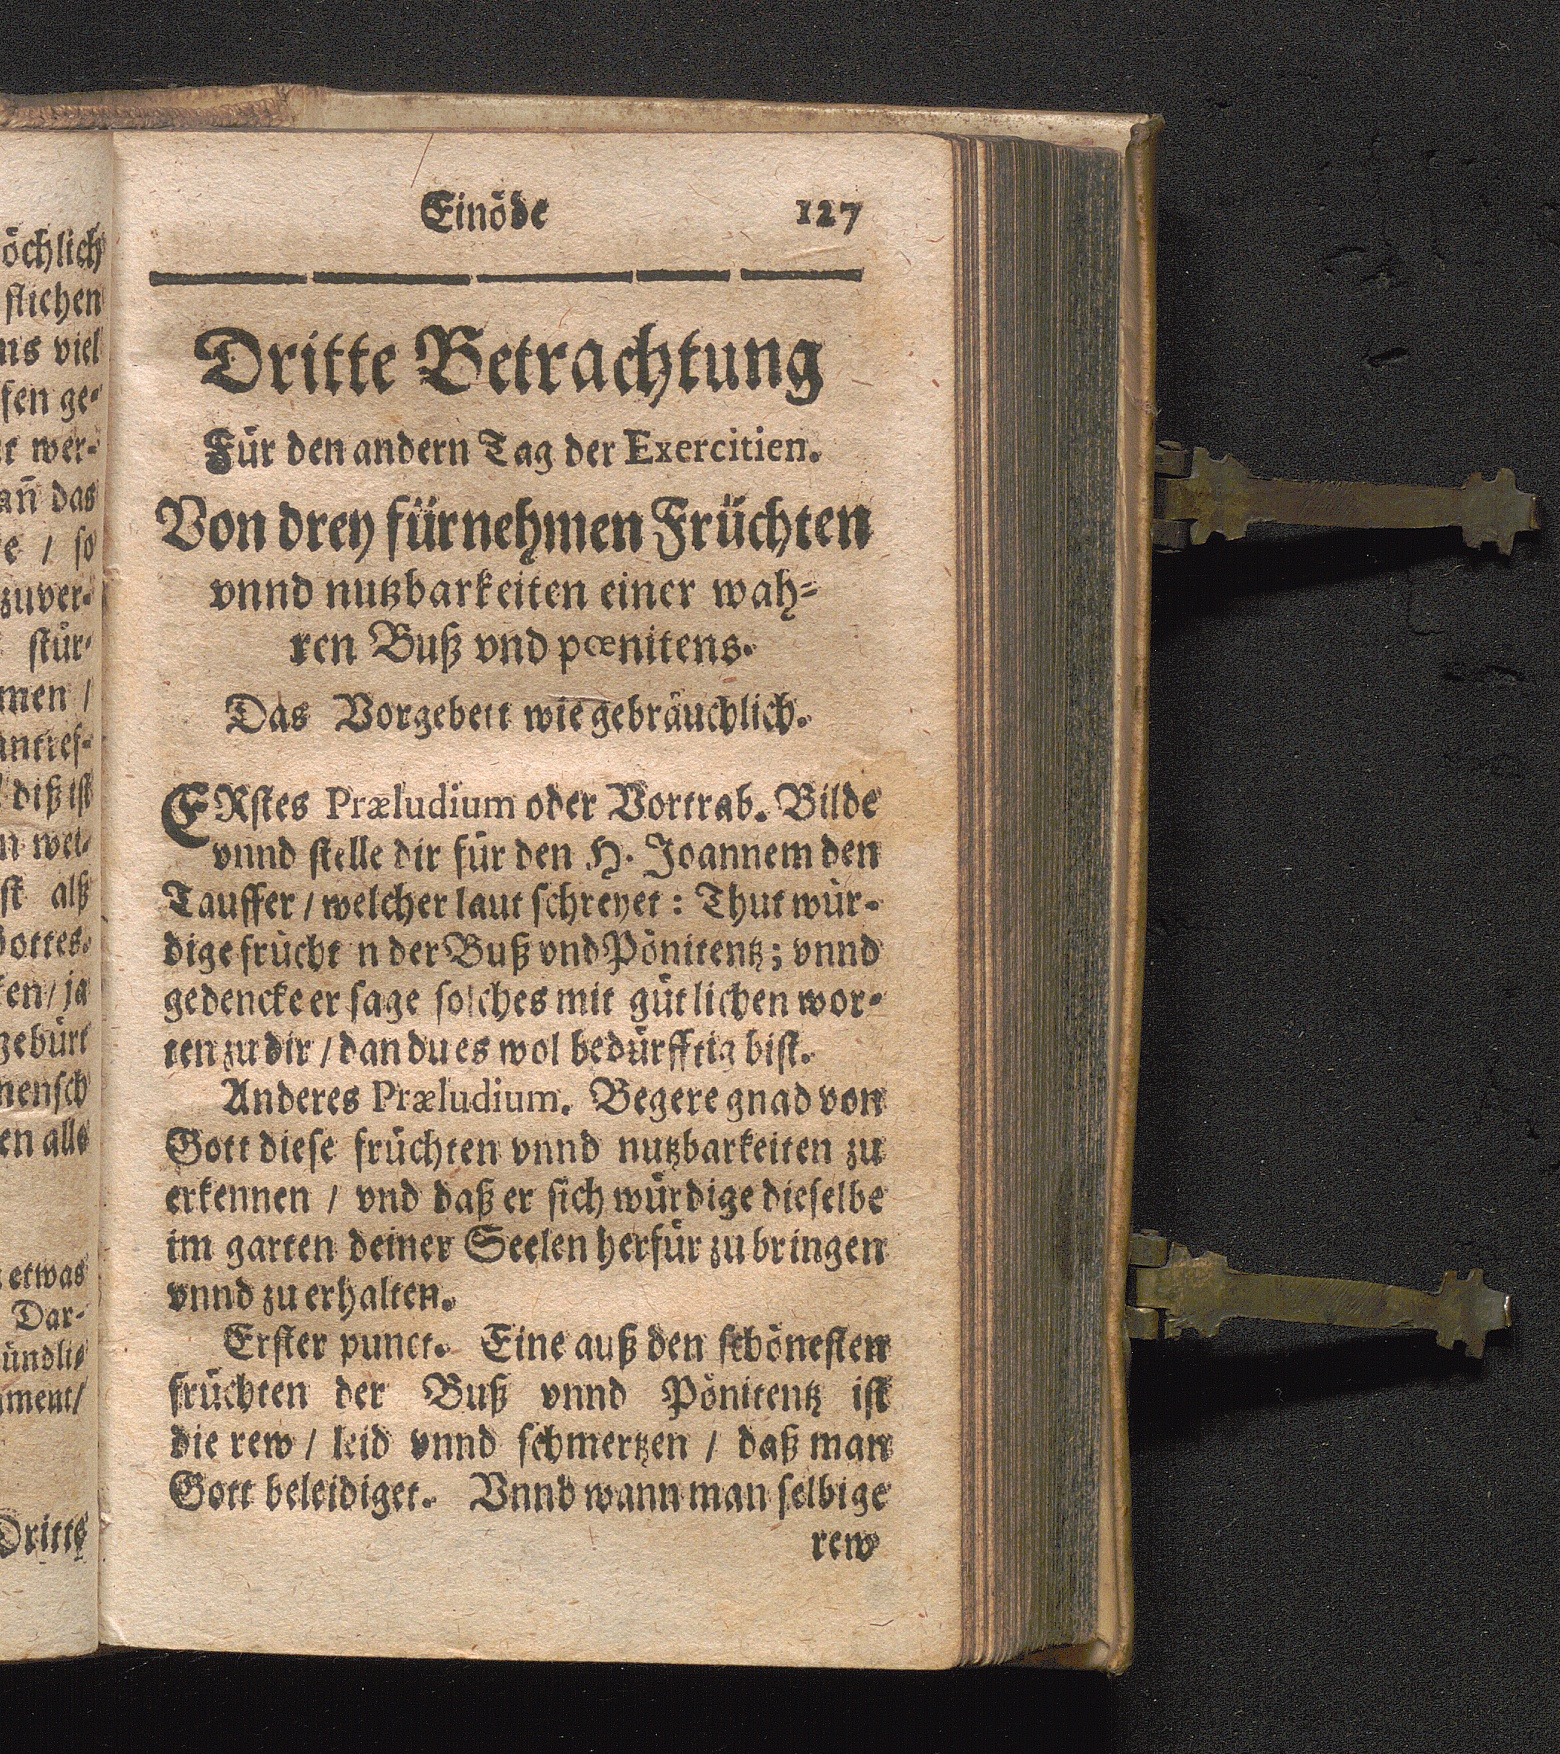 Einöde 127
Dritte Betrachtung
Für den andern Tag der Exercitien.
Von drey fürnehmen Früchten
vnnd nutzbarkeiten einer wah-
ren Buß vnd pœnitens.
Das Vorgebett wie gebräuchlich.
ERstes Præludium oder Vortrab. Bilde
vnnd stelle dir für den H. Joannem den
Tauffer / welcher laut schreyet : Thut wür-
dige frücht n der Buß vnd Pönitentz ; vnnd
gedencke er sage solches mit gütlichen wor-
ten zu dir / dan du es wol bedürfftig bist.
Anderes Præludium. Begere gnad von
Gott diese früchten vnnd nutzbarkeiten zu
erkennen / vnd daß er sich würdige dieselbe
im garten deiner Seelen herfür zu bringen
vnnd zu erhalten.
Erster punct. Eine auß den schönesten
früchten der Buß vnnd Pönitentz ist
die rew / leid vnnd schmertzen / daß man
Gott beleidiget. Vnnd wann man selbige
rew
öchlich
stichen
ns viel
fen ge-
wer-
añ das
e / so
zuver-
stür-
men /
antref-
diß ist
n wei-
st alß
ottes.
en / ja
gebürt
mensch
en alle
etwas
Dar-
ündli-
ment /
Dritte